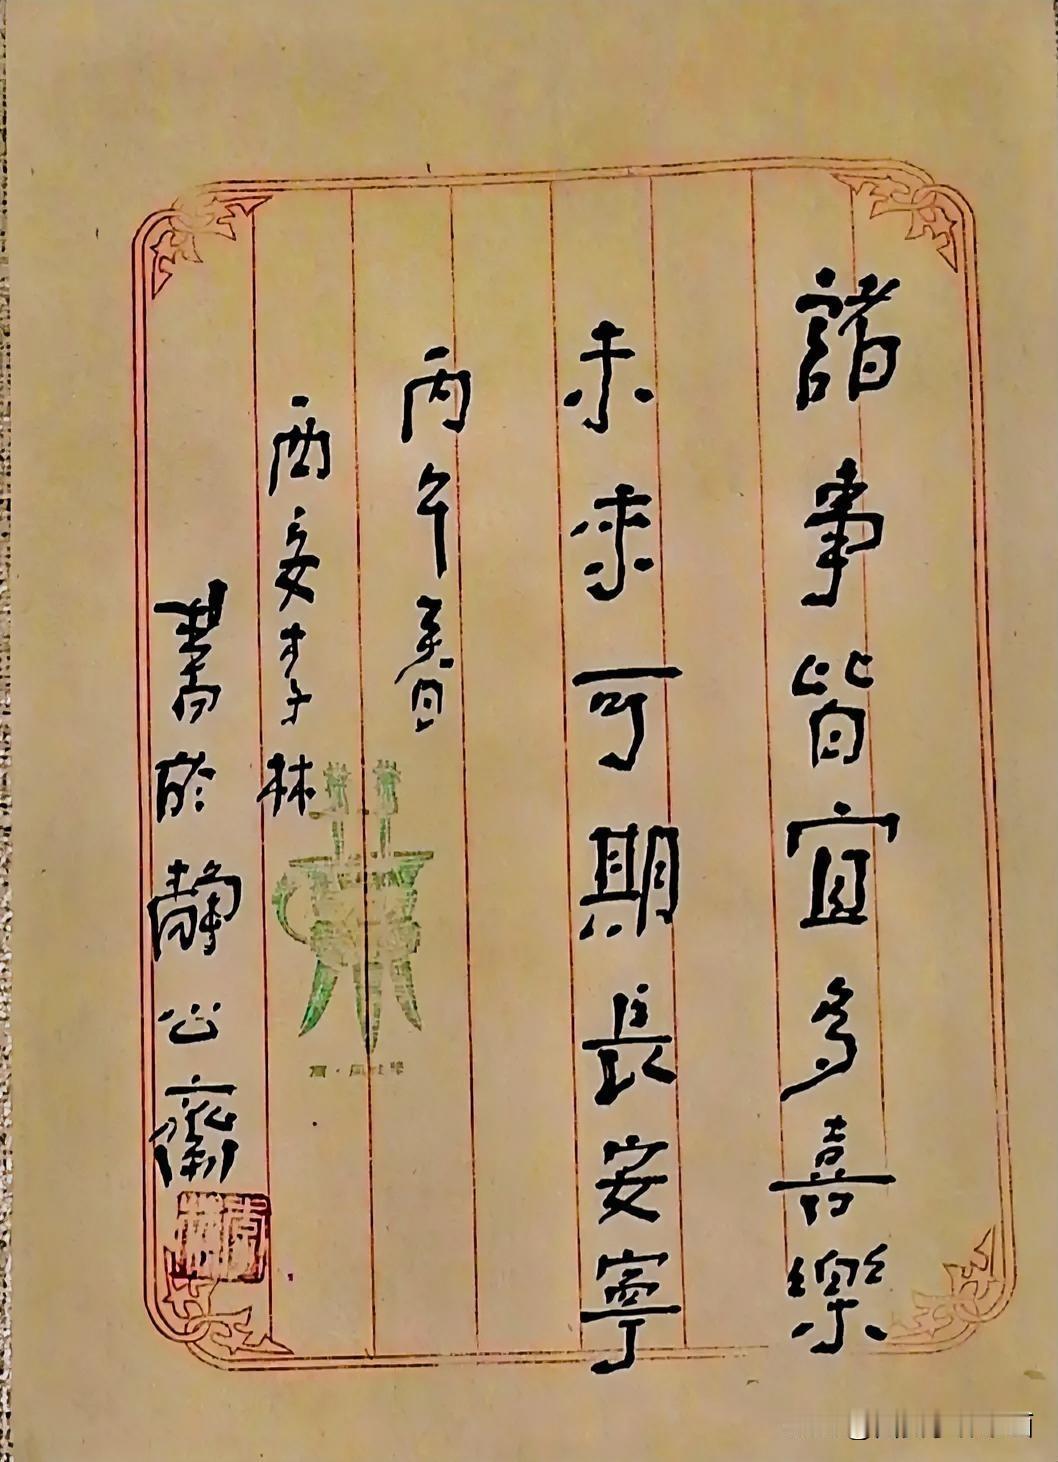 諸事皆宜多喜樂
未來可期長安寧
丙午春
西安李林
書於靜心齋
李林